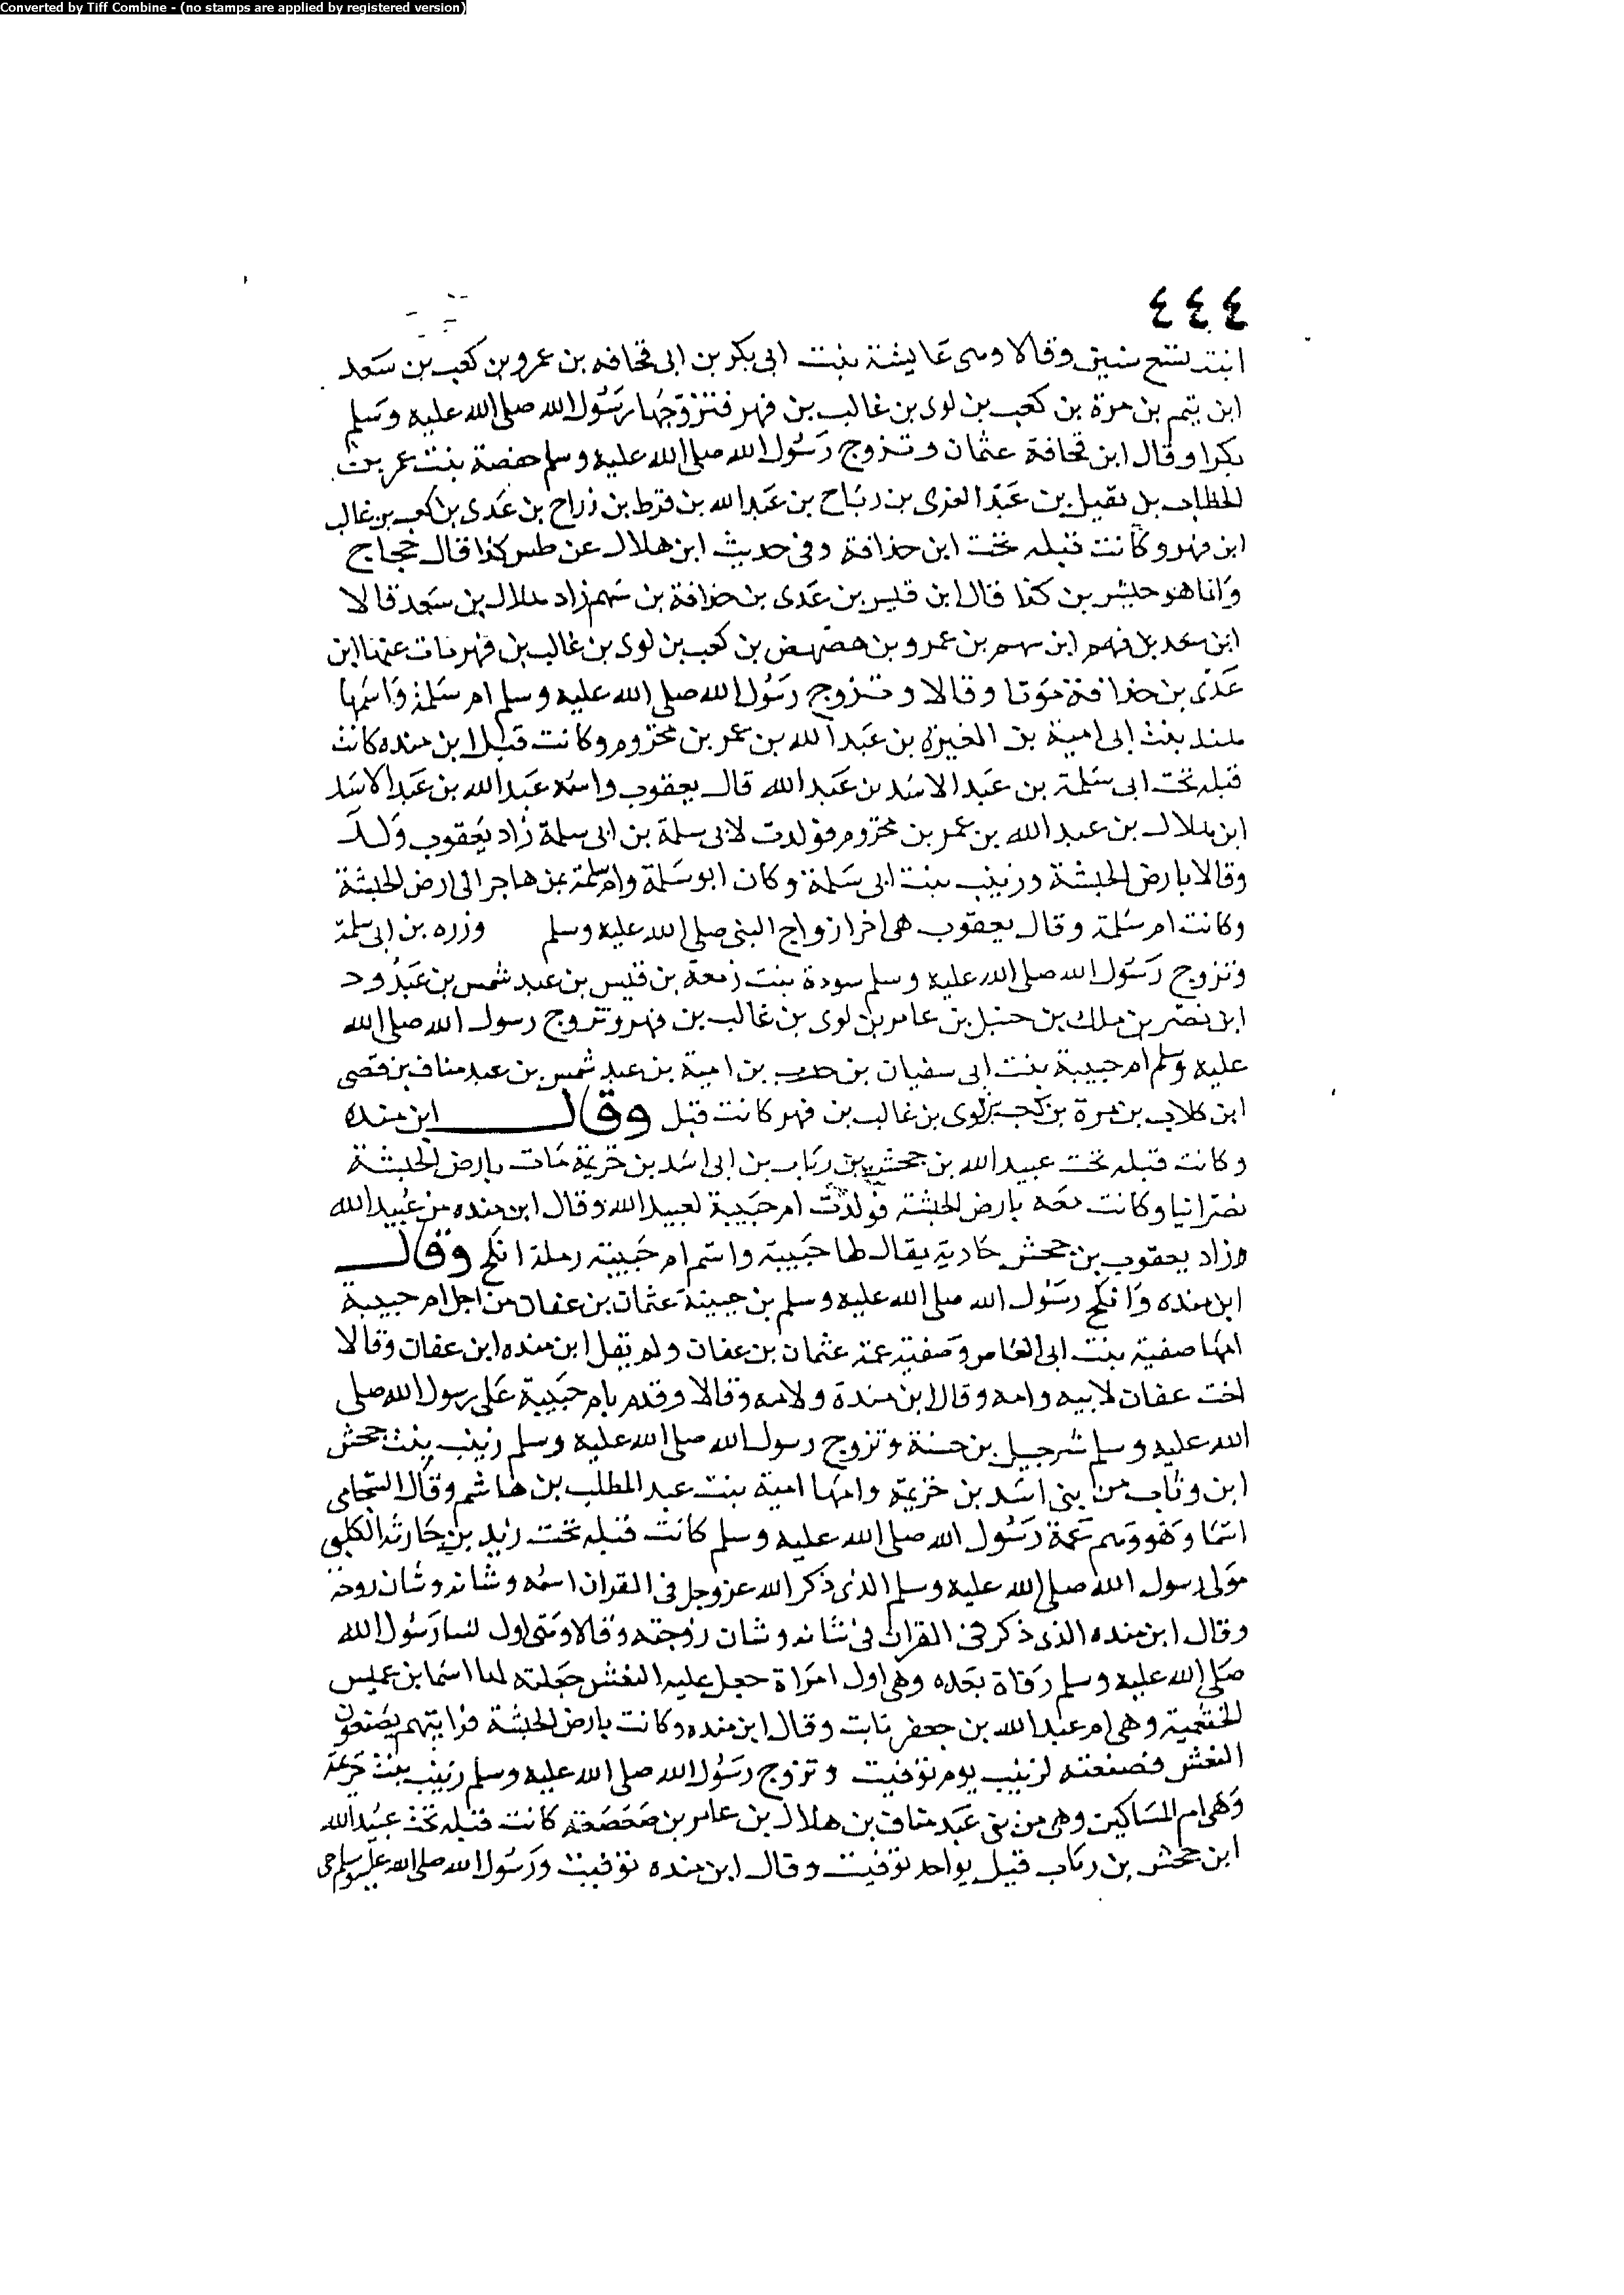 Converted by Tiff Combine - (no stamps are applied by registered version)
٤٤٤
ابنت تسع سنين وقالا وهى عايشة بنت ابى بكر بن ابى قحافه بن عمرو بن كعب بن سعد
ابن تيم بن مرة بن كعب بن لوى بن غالب بن فهر فتزوجها رسول الله صلى الله عليه وسلم
بكرا وقال ابن قحافة عثمان وتزوج رسول الله صلى الله عليه وسلم حفصة بنت عمر بن
الخطاب بن نفيل بن عبد العزى بن رباح بن عبد الله بن قرط بن زراح بن عدى بن كعب بن غالب
ابن فهر وكانت قبله تحت ابن حذافة وفى حديث ابن هلال عن طس كذا قال حجاج
وانا هو حليس بن كذا قال ابن قيس بن عدى بن حذافة بن سهم زاد هلال بن سعد قالا
ابن سعد بن فهم ابن سهم بن عمرو بن هصهص بن كعب بن لوى بن غالب بن فهر مات عنها ابن
عدى بن حذافة موتا وقالا وتزوج رسول الله صلى الله عليه وسلم ام سلمة واسمها
هند بنت ابى امية بن المغيرة بن عبد الله بن عمر بن مخزوم وكانت قبل ابن منده كانت
قبله تحت ابى سلمة بن عبد الاسد بن عبد الله قال يعقوب واسمه عبد الله بن عبد الاسد
ابن هلال بن عبد الله بن عمر بن مخزوم فولدت لابى سلمة بن ابى سلمة زاد يعقوب ولد
وقالا بارض الحبشة وزينب بنت ابى سلمة وكان ابو سلمة وام سلمة ممن هاجر الى ارض الحبشة
وكانت ام سلمة وقال يعقوب هى اخر ازواج النبى صلى الله عليه وسلم وزره بن ابى سلمة
وتزوج رسول الله صلى الله عليه وسلم سودة بنت زمعة بن قيس بن عبد شمس بن عبد ود
ابن نصر بن ملك بن حنبل بن عامر بن لوى بن غالب بن فهر وتزوج رسول الله صلى الله
عليه وسلم ام حبيبة بنت ابى سفيان بن حرب بن امية بن عبد شمس بن عبد مناف بن قصى
ابن كلاب بن مرة بن كعب بن لوى بن غالب بن فهر كانت قبل وقال ابن منده
وكانت قبله تحت عبيد الله بن جحش بن رباب بن ابى اسد بن خزيمة مات بارض الحبشة
نصرانيا وكانت معه بارض الحبشة فولدت ام حبيبة لعبيد الله وقال ابن منده من عبيد الله
وزاد يعقوب بن جحش جارية يقال لها حبيبة واسم ام حبيبة رملة انكح وقال
ابن منده وانكح رسول الله صلى الله عليه وسلم بن حبيبة عثمان بن عفان من اجل ام حبيبة
امها صفية بنت ابى العاص وصفية عمة عثمان بن عفان ولم يقل ابن منده ابن عفان وقالا
اخت عفان لابيه وامه وقال ابن مندة ولامه وقالا وقدم بام حبيبة على رسول الله صلى
الله عليه وسلم شرجيل بن حسنة وتزوج رسول الله صلى الله عليه وسلم زينب بنت جحش
ابن وثاب من بنى اسد بن خزيمة وامها امية بنت عبد المطلب بن هاشم وقال الشحامى
انما وهو وهم عمة رسول الله صلى الله عليه وسلم كانت قبله تحت زيد بن حارثة الكلبى
مولى رسول الله صلى الله عليه وسلم الذى ذكر الله عز وجل فى القران اسمه وشانه وشان زوجه
وقال ابن منده الذى ذكر فى القران فى شانه وشان زوجته وقالا ومتى اول نسا رسول الله
صلى الله عليه وسلم وفاة بعده وهى اول امراة جعل عليه النعش جعلته لها اسما بن عميس
الخثعمية وهى ام عبد الله بن جعفر ثابت وقال ابن منده وكانت بارض الحبشة فراتهم يصنعون
النعش فصنعته لزينب يوم توفيت وتزوج رسول الله صلى الله عليه وسلم زينب بنت خزيمة
وهى ام المساكين وهى من بنى عبد مناف بن هلال بن عامر بن صعصعة كانت قبله تحت عبيد الله
ابن جحش بن رباب قتيل يو احد توفيت وقال ابن منده توفيت ورسول الله صلى الله عليه وسلم حى